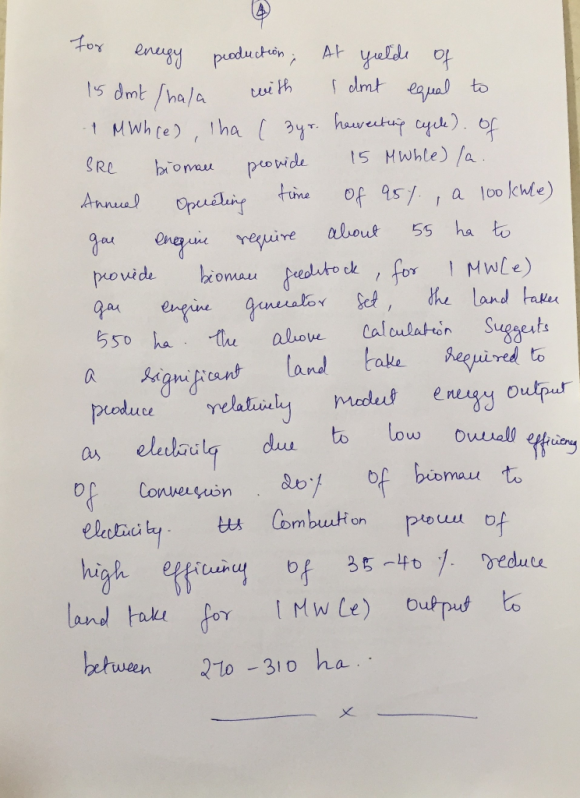 4
For energy production, At yields of
15 dmt/ha/a with 1 dmt equal to
1 MWh(e), 1ha (3yr. harvesting cycle). of
SRC biomass provide 15 MWh(e)/a.
Annual Operating time of 95%, a 100kW(e)
gas engine require about 55 ha to
provide biomass feedstock, for 1 MW(e)
gas engine generator set, the land takes
550 ha. The above calculation Suggests
a significant land take required to
produce relatively modest energy output
as electricity due to low overall efficiency
Of Conversion. 20% of biomass to
electricity. Combustion process of
high efficiency of 35-40% reduce
land take for 1 MW(e) output to
between 270-310 ha..
x